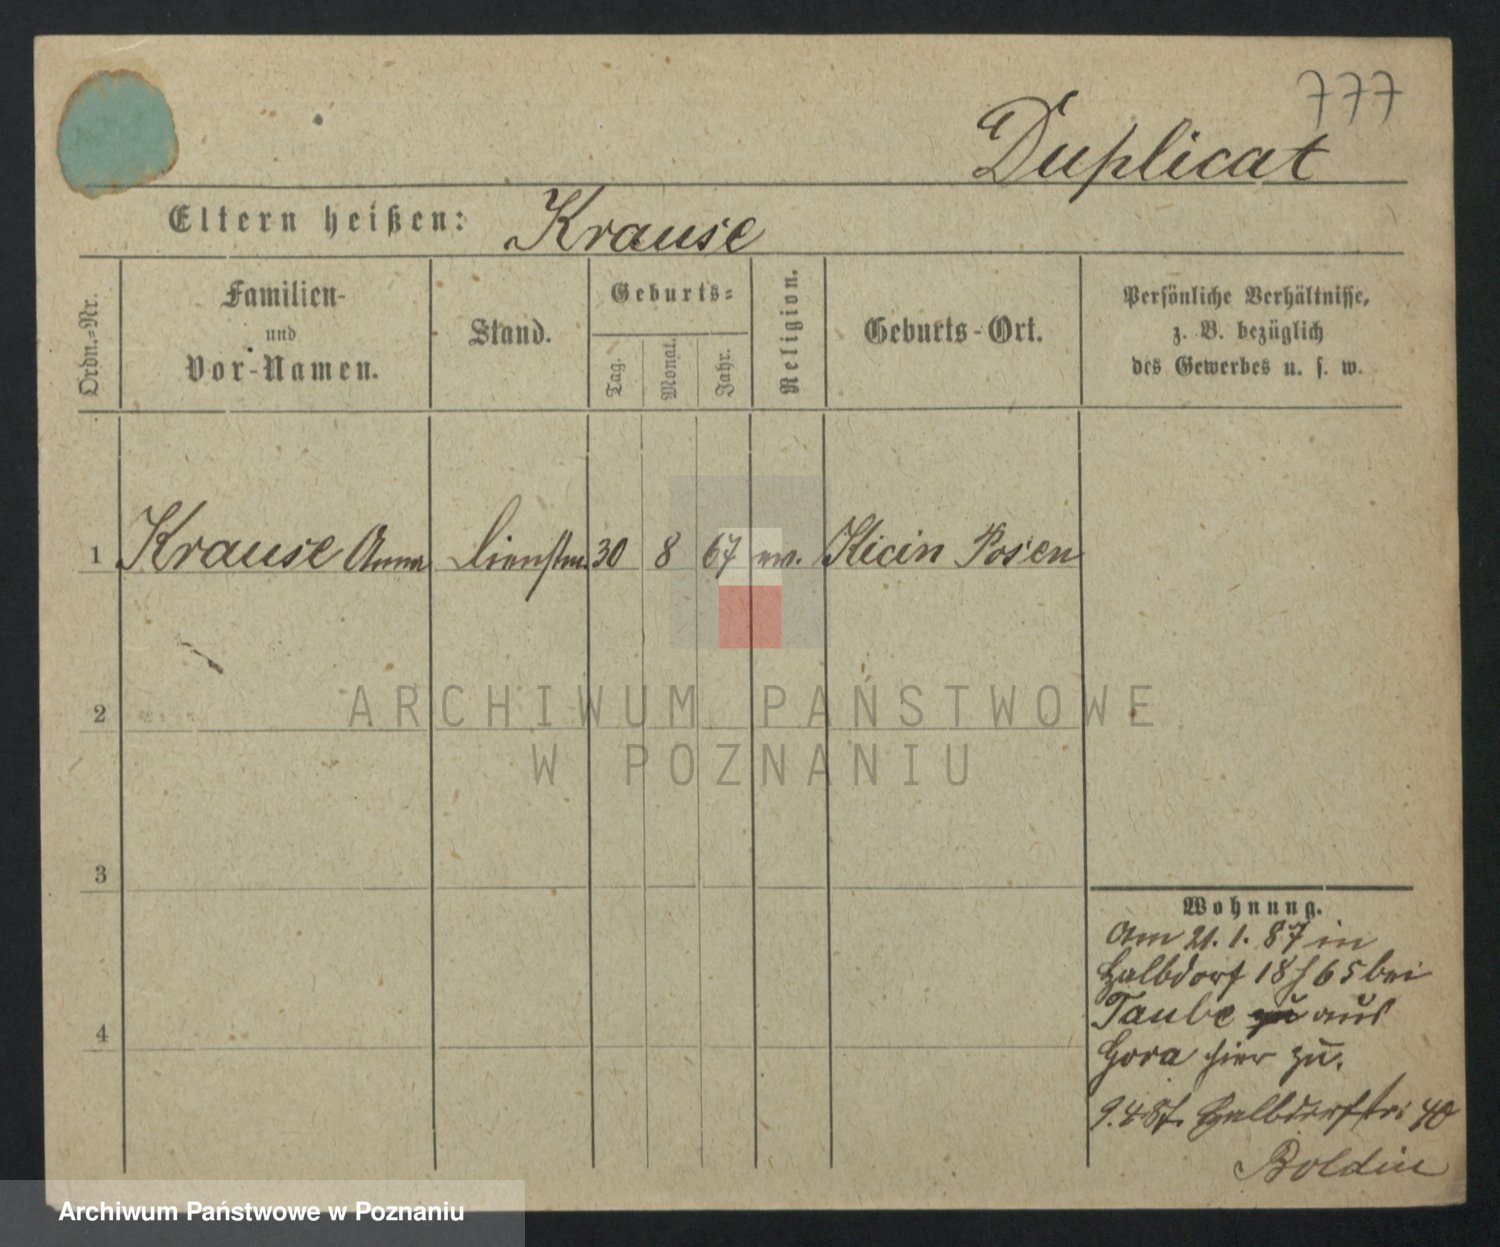 777
Duplicat
Eltern heißen: Krause
Ordn.-Nr.
Familien-
und
Vor-Namen.
Stand.
Geburts=
Tag.
Monat.
Jahr.
Religion.
Geburts-Ort.
Persönliche Verhältnisse,
z. B. bezüglich
des Gewerbes u. s. w.
1 Krause Anna Dienstm. 30 8 67 ev. Kicin Posen
2
ARCHIWUM PAŃSTWOWE
W POZNANIU
3
4
Wohnung.
Am 21. 1. 87 in
Halbdorf 18 65 bei
Taube aus
Gora hier zu.
9.4.87. Halbdorfstr: 40
Boldin
Archiwum Państwowe w Poznaniu